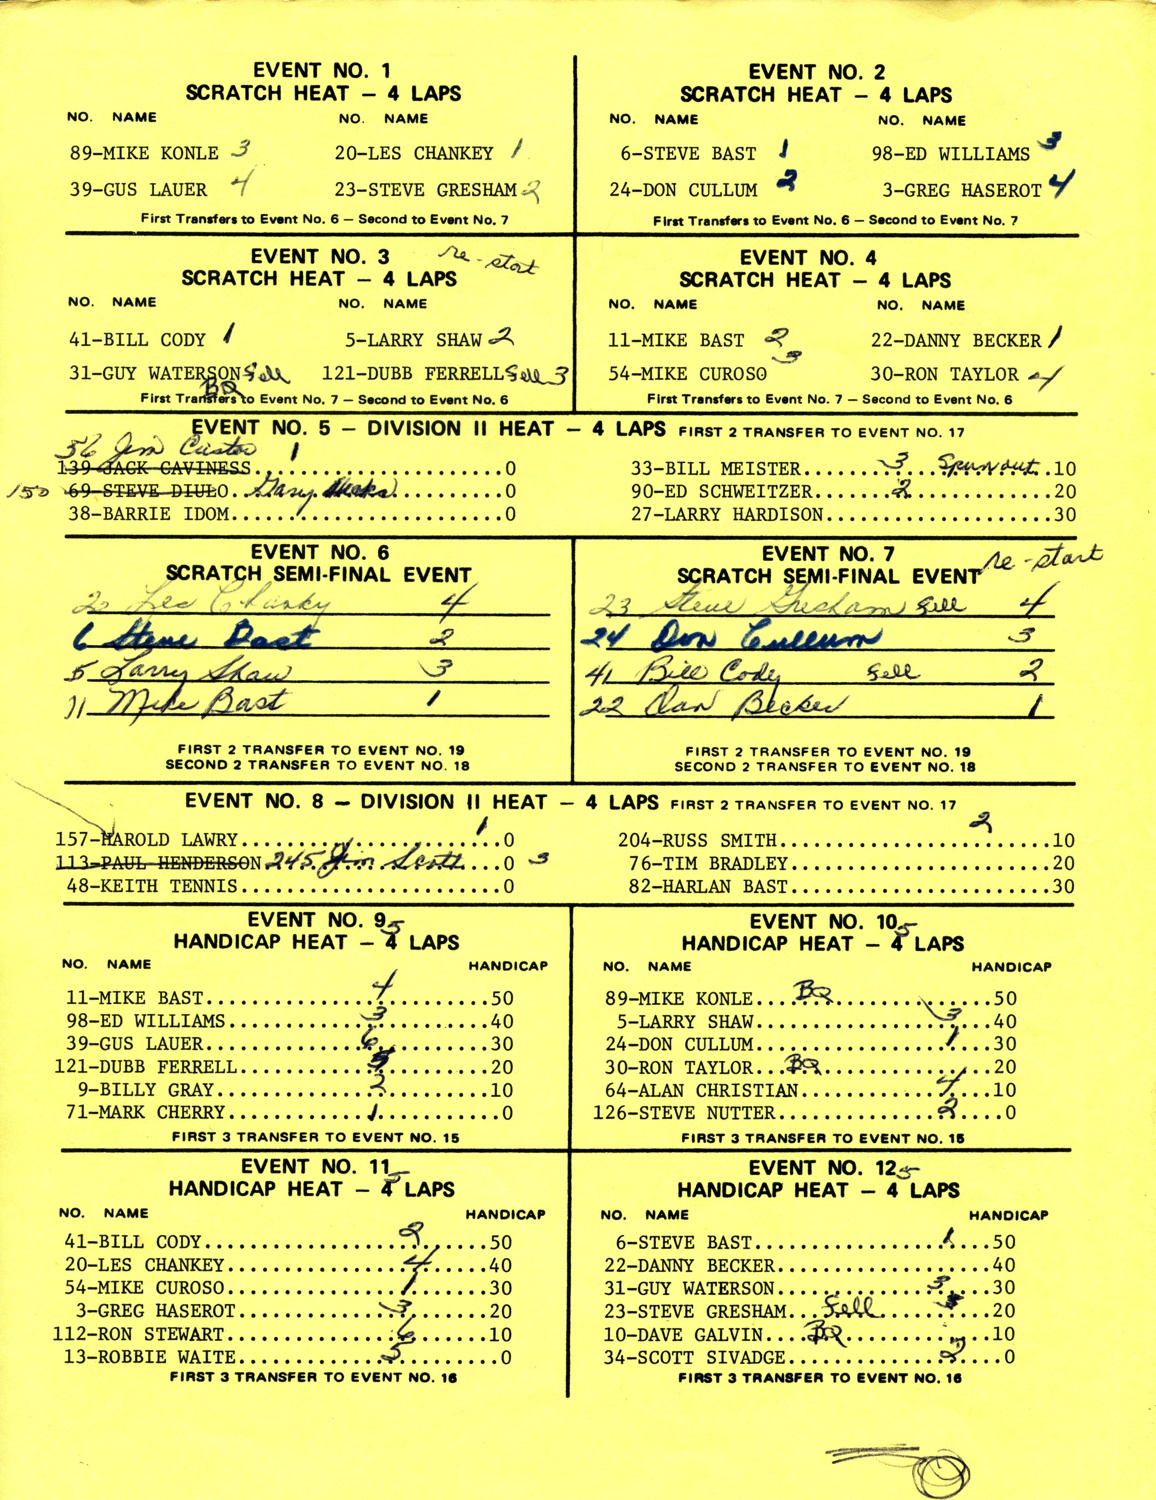 EVENT NO. 1
SCRATCH HEAT – 4 LAPS
NO. NAME NO. NAME
89-MIKE KONLE 3 20-LES CHANKEY 1
39-GUS LAUER 4 23-STEVE GRESHAM 2
First Transfers to Event No. 6 – Second to Event No. 7
EVENT NO. 2
SCRATCH HEAT – 4 LAPS
NO. NAME NO. NAME
6-STEVE BAST 1 98-ED WILLIAMS 3
24-DON CULLUM 2 3-GREG HASEROT 4
First Transfers to Event No. 6 – Second to Event No. 7
EVENT NO. 3 re-start
SCRATCH HEAT – 4 LAPS
NO. NAME NO. NAME
41-BILL CODY 1 5-LARRY SHAW 2
31-GUY WATERSON fell 121-DUBB FERRELL fell 3
BQ
First Transfers to Event No. 7 – Second to Event No. 6
EVENT NO. 4
SCRATCH HEAT – 4 LAPS
NO. NAME NO. NAME
11-MIKE BAST 2 22-DANNY BECKER 1
54-MIKE CUROSO 3 30-RON TAYLOR 4
First Transfers to Event No. 7 – Second to Event No. 6
EVENT NO. 5 – DIVISION II HEAT – 4 LAPS FIRST 2 TRANSFER TO EVENT NO. 17
56 Jim Custer 1
139-JACK CAVINESS.........................0 33-BILL MEISTER.......3 Spun out..10
150 69-STEVE DIULO..Gary Hicks..........0 90-ED SCHWEITZER.......2..............20
38-BARRIE IDOM........................0 27-LARRY HARDISON......................30
EVENT NO. 6
SCRATCH SEMI-FINAL EVENT
20 Les Chanky 4
6 Steve Bast 2
5 Larry Shaw 3
11 Mike Bast 1
FIRST 2 TRANSFER TO EVENT NO. 19
SECOND 2 TRANSFER TO EVENT NO. 18
EVENT NO. 7 re-start
SCRATCH SEMI-FINAL EVENT
23 Steve Gresham fell 4
24 Don Cullum 3
41 Bill Cody fell 2
22 Dan Becker 1
FIRST 2 TRANSFER TO EVENT NO. 19
SECOND 2 TRANSFER TO EVENT NO. 18
EVENT NO. 8 – DIVISION II HEAT – 4 LAPS FIRST 2 TRANSFER TO EVENT NO. 17
157-HAROLD LAWRY.......................1.0 204-RUSS SMITH................2........10
113-PAUL HENDERSON 245 Jim Scott...0 3 76-TIM BRADLEY.........................20
48-KEITH TENNIS.......................0 82-HARLAN BAST.........................30
EVENT NO. 9
HANDICAP HEAT – 4 LAPS 5
NO. NAME HANDICAP
11-MIKE BAST...............4..........50
98-ED WILLIAMS.............3.........40
39-GUS LAUER...............6.........30
121-DUBB FERRELL............5.........20
9-BILLY GRAY..............2.........10
71-MARK CHERRY.............1..........0
FIRST 3 TRANSFER TO EVENT NO. 15
EVENT NO. 10
HANDICAP HEAT – 4 LAPS 5
NO. NAME HANDICAP
89-MIKE KONLE....BQ................50
5-LARRY SHAW................3...40
24-DON CULLUM................1...30
30-RON TAYLOR...BQ................20
64-ALAN CHRISTIAN............4...10
126-STEVE NUTTER..............2....0
FIRST 3 TRANSFER TO EVENT NO. 15
EVENT NO. 11
HANDICAP HEAT – 4 LAPS 5
NO. NAME HANDICAP
41-BILL CODY.................2......50
20-LES CHANKEY...............4......40
54-MIKE CUROSO...............1......30
3-GREG HASEROT..............3.......20
112-RON STEWART...............6......10
13-ROBBIE WAITE..............5........0
FIRST 3 TRANSFER TO EVENT NO. 16
EVENT NO. 12
HANDICAP HEAT – 4 LAPS 5
NO. NAME HANDICAP
6-STEVE BAST................1...50
22-DANNY BECKER..................40
31-GUY WATERSON.............3...30
23-STEVE GRESHAM...fell.........20
10-DAVE GALVIN....BQ............10
34-SCOTT SIVADGE.............2....0
FIRST 3 TRANSFER TO EVENT NO. 16